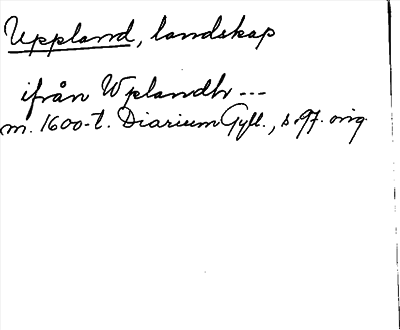 Uppland, landskap
ifrån Wplandh ---
m. 1600-t. Diarium Gyll., s. 97. orig.